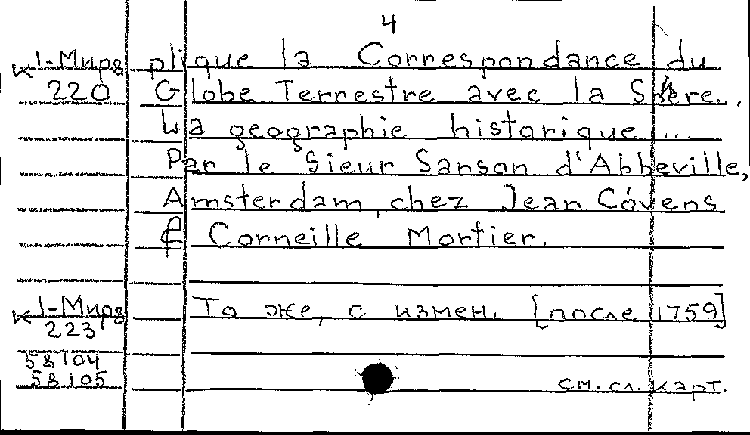 4
К 1-Мира plique la Correspondance du
220 Globe Terrestre avec la Sphere..
La geographie historique ...
Par le Sieur Sanson d'Abbeville,
Amsterdam, chez Jean Cóvens
& Corneille Mortier.
К 1-Мира То же, с измен. [после 1759]
223
58104
58105 см. сл. карт.